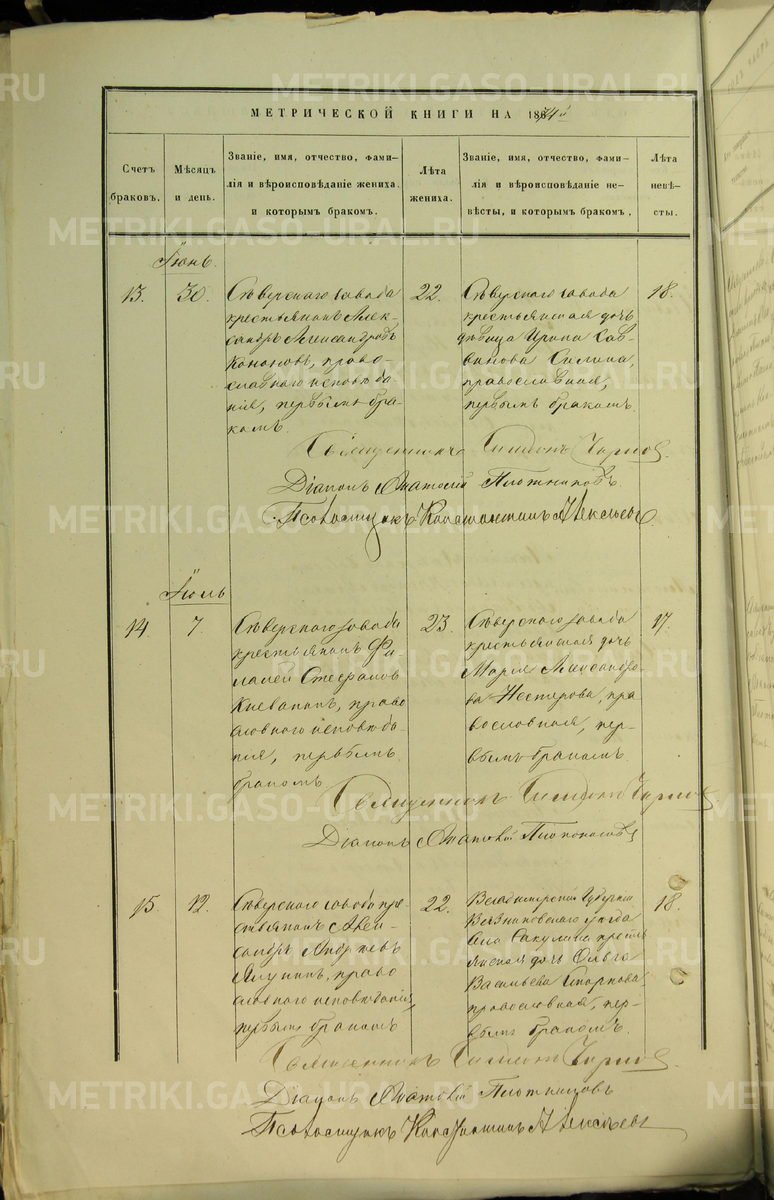 МЕТРИЧЕСКОЙ КНИГИ НА 1874й
Счетъ браковъ.
Мѣсяцъ и день.
Званіе, имя, отчество, фами-
лія и вѣроисповѣданіе жениха.
и которымъ бракомъ.
Лѣта жениха.
Званіе, имя, отчество, фами-
лія и вѣроисповѣданіе не-
вѣсты, и которымъ бракомъ,
Лѣта невѣ-
сты.
Іюнь.
13.
30.
Сѣверскаго завода
крестьянинъ Алек-
сандръ Александровъ
Кононовъ, право-
славнаго исповѣда
нія, первымъ бра-
комъ.
22.
Сѣверскаго завода
крестьянская дочь
дѣвица Ирина Сав-
винова Силина,
православная,
первымъ бракомъ.
18.
Священникъ Симеонъ
Діаконъ Анатолій Плотниковъ
Псаломщикъ Константинъ Алексѣевъ
Іюль
14.
7.
Сѣверскаго завода
крестьянинъ Фи
Стефановъ
право
славнаго исповѣда
нія, первымъ
бракомъ
23.
Сѣверскаго завода
крестьянская дочь
Марія Александро-
ва Нестерова, пра
вославная, пер-
вымъ бракомъ
17.
Священникъ Симеонъ
Діаконъ Анатолій Плотниковъ
15.
12.
Сѣверскаго завода кре-
стьянинъ Алек-
сандръ Андреевъ
Якунинъ, право
славнаго исповѣданія,
первымъ бракомъ
22.
Владимірской Губерніи
Вязниковскаго уѣзда
села Сакулина кресть
янская дочь Ольга
Васильева
православная, пер-
вымъ бракомъ.
18.
Священникъ Симеонъ
Діаконъ Анатолій Плотниковъ
Псаломщикъ Константинъ Алексѣевъ
METRIKI.GASO-URAL.RU